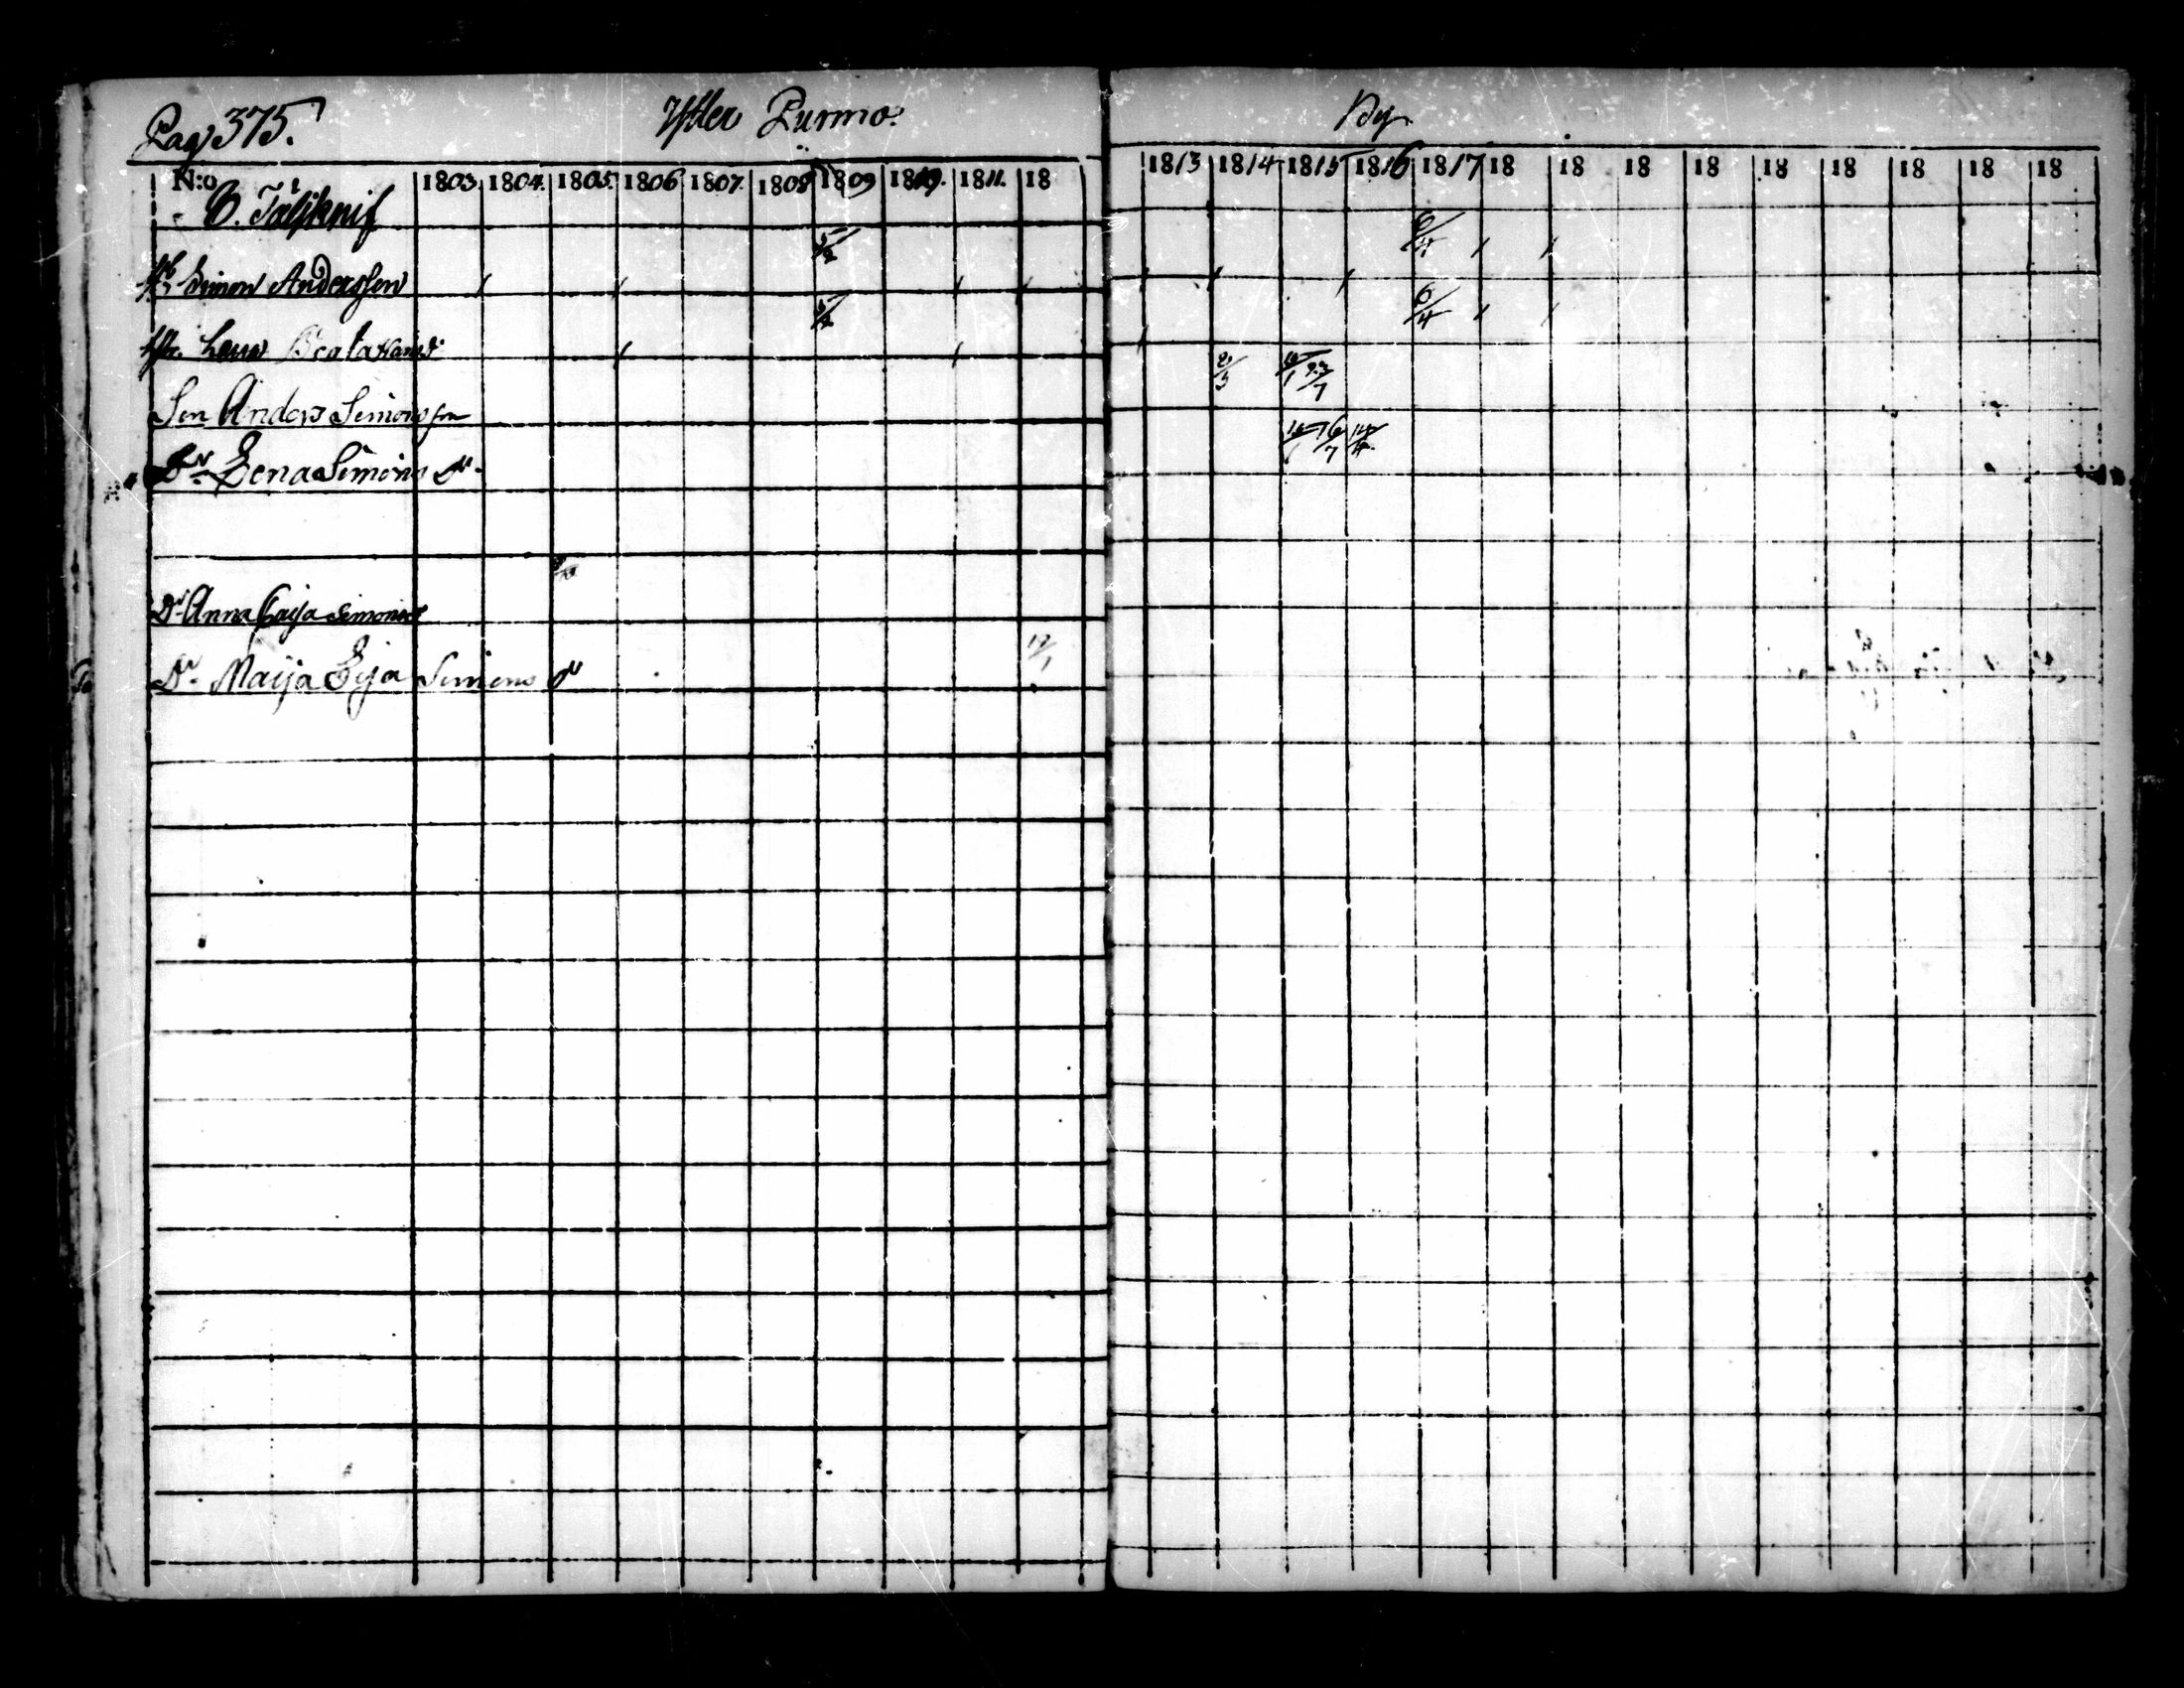 Pag 375. Ytter Purmo. By
N:o 1803. 1804. 1805. 1806 1807. 1808 1809 1810. 1811. 18 1813 1814 1815 1816 1817 18 18 18 18 18 18 18 18 18
6. Täljknif
5/2 6/4
Simon Andersson
5/2 6/4
Hu. Lena Beata
2/3 16/1 23/7
Son Anders Simonsson
16/1 16/7 14/4
Dr. Lena Simons dr.
Dr. Anna Caija Simonsdr
12/1
Dr. Maija Lisa Simons dr